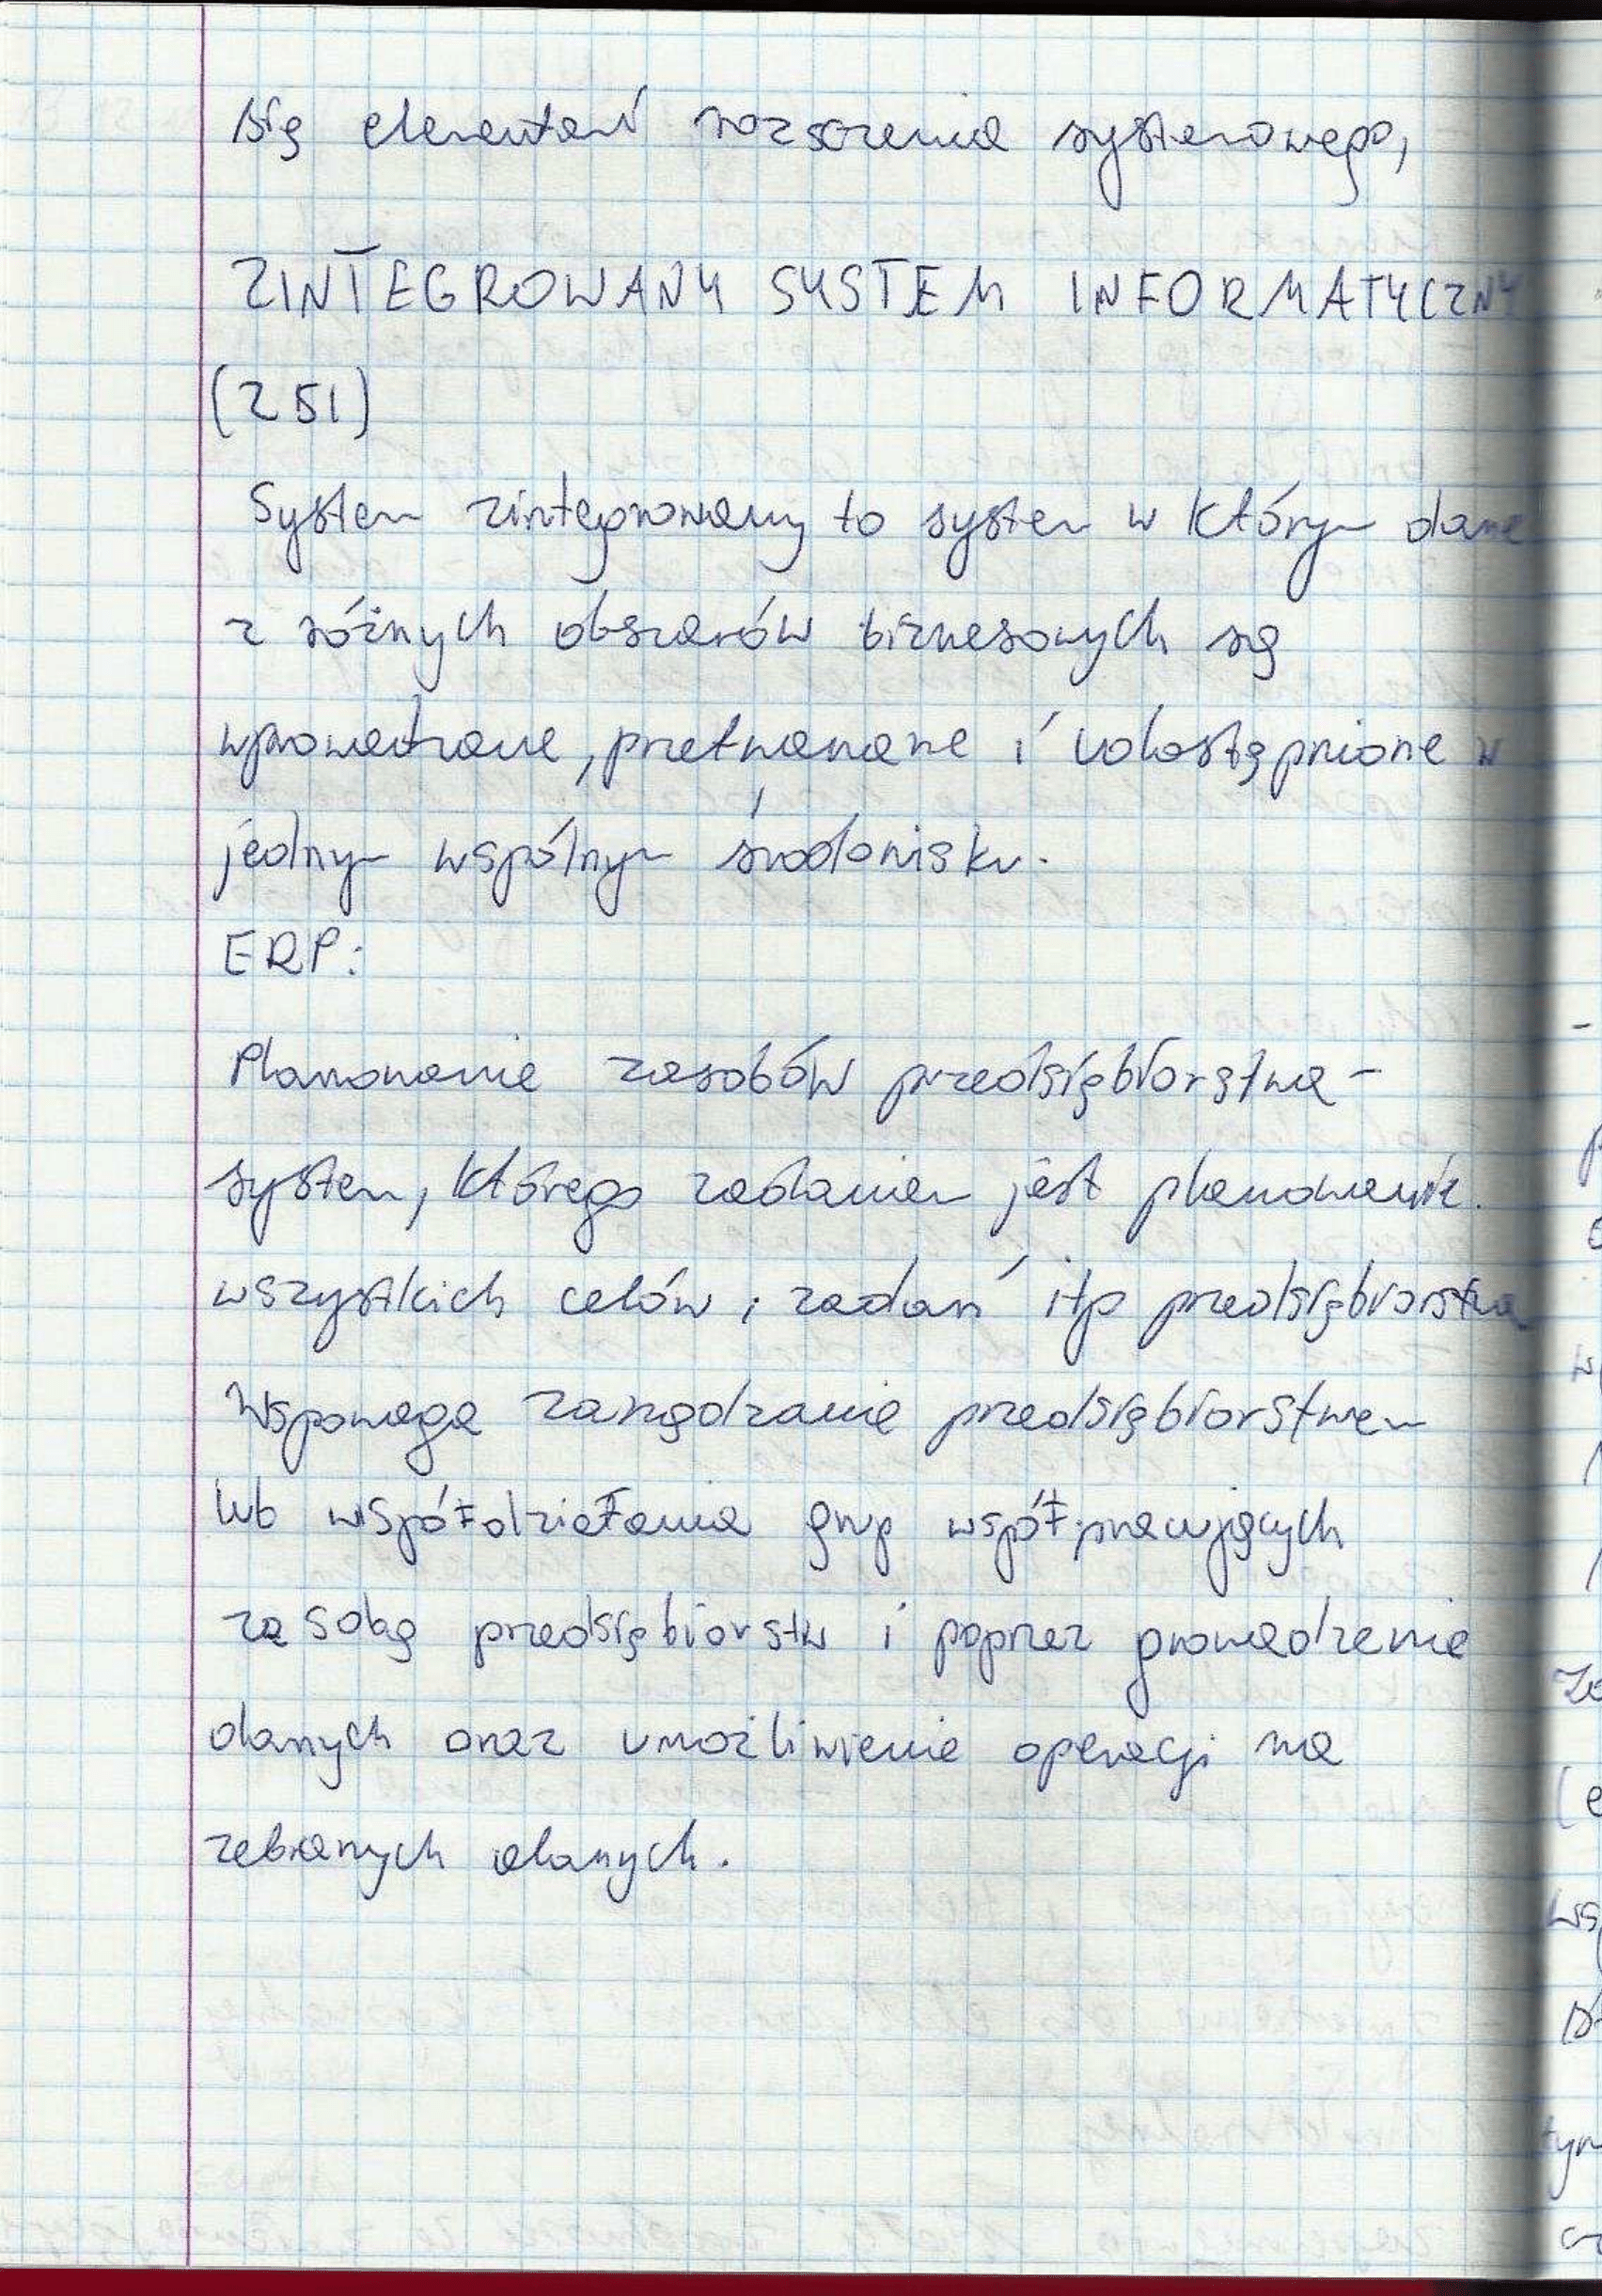 się elementań rozszerzenia systemowego,
ZINTEGROWANY SYSTEM INFORMATYCZNY
(ZSI)
System zintegrowany to system w którym dane
z różnych obszarów biznesowych są
wprowadzane, przetwarzane i udostępnione w
jednym wspólnym środowisku.
ERP:
Planowanie zasobów przedsiębiorstwa -
system, którego zadaniem jest planowanie.
wszystkich celów i zadań itp przedsiębiorstwa
Wspomaga zarządzanie przedsiębiorstwem
lub współdziałania grup współpracujących
ze sobą przedsiębiorstw i poprzez gromadzenie
danych oraz umożliwienie operacji na
zebranych danych.